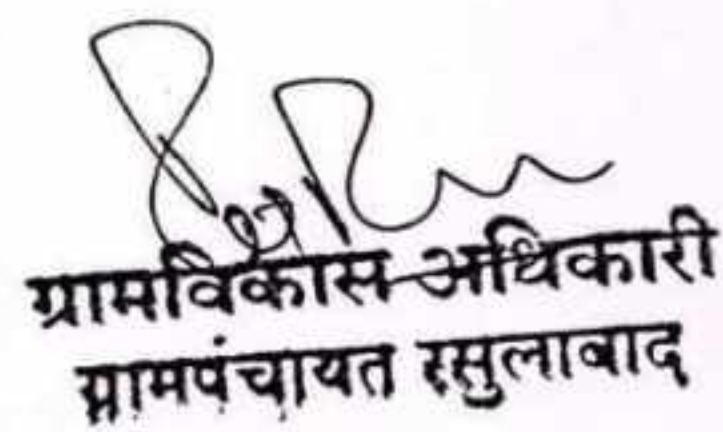 ग्रामविकास अधिकारी
ग्रामपंचायत रसुलाबाद